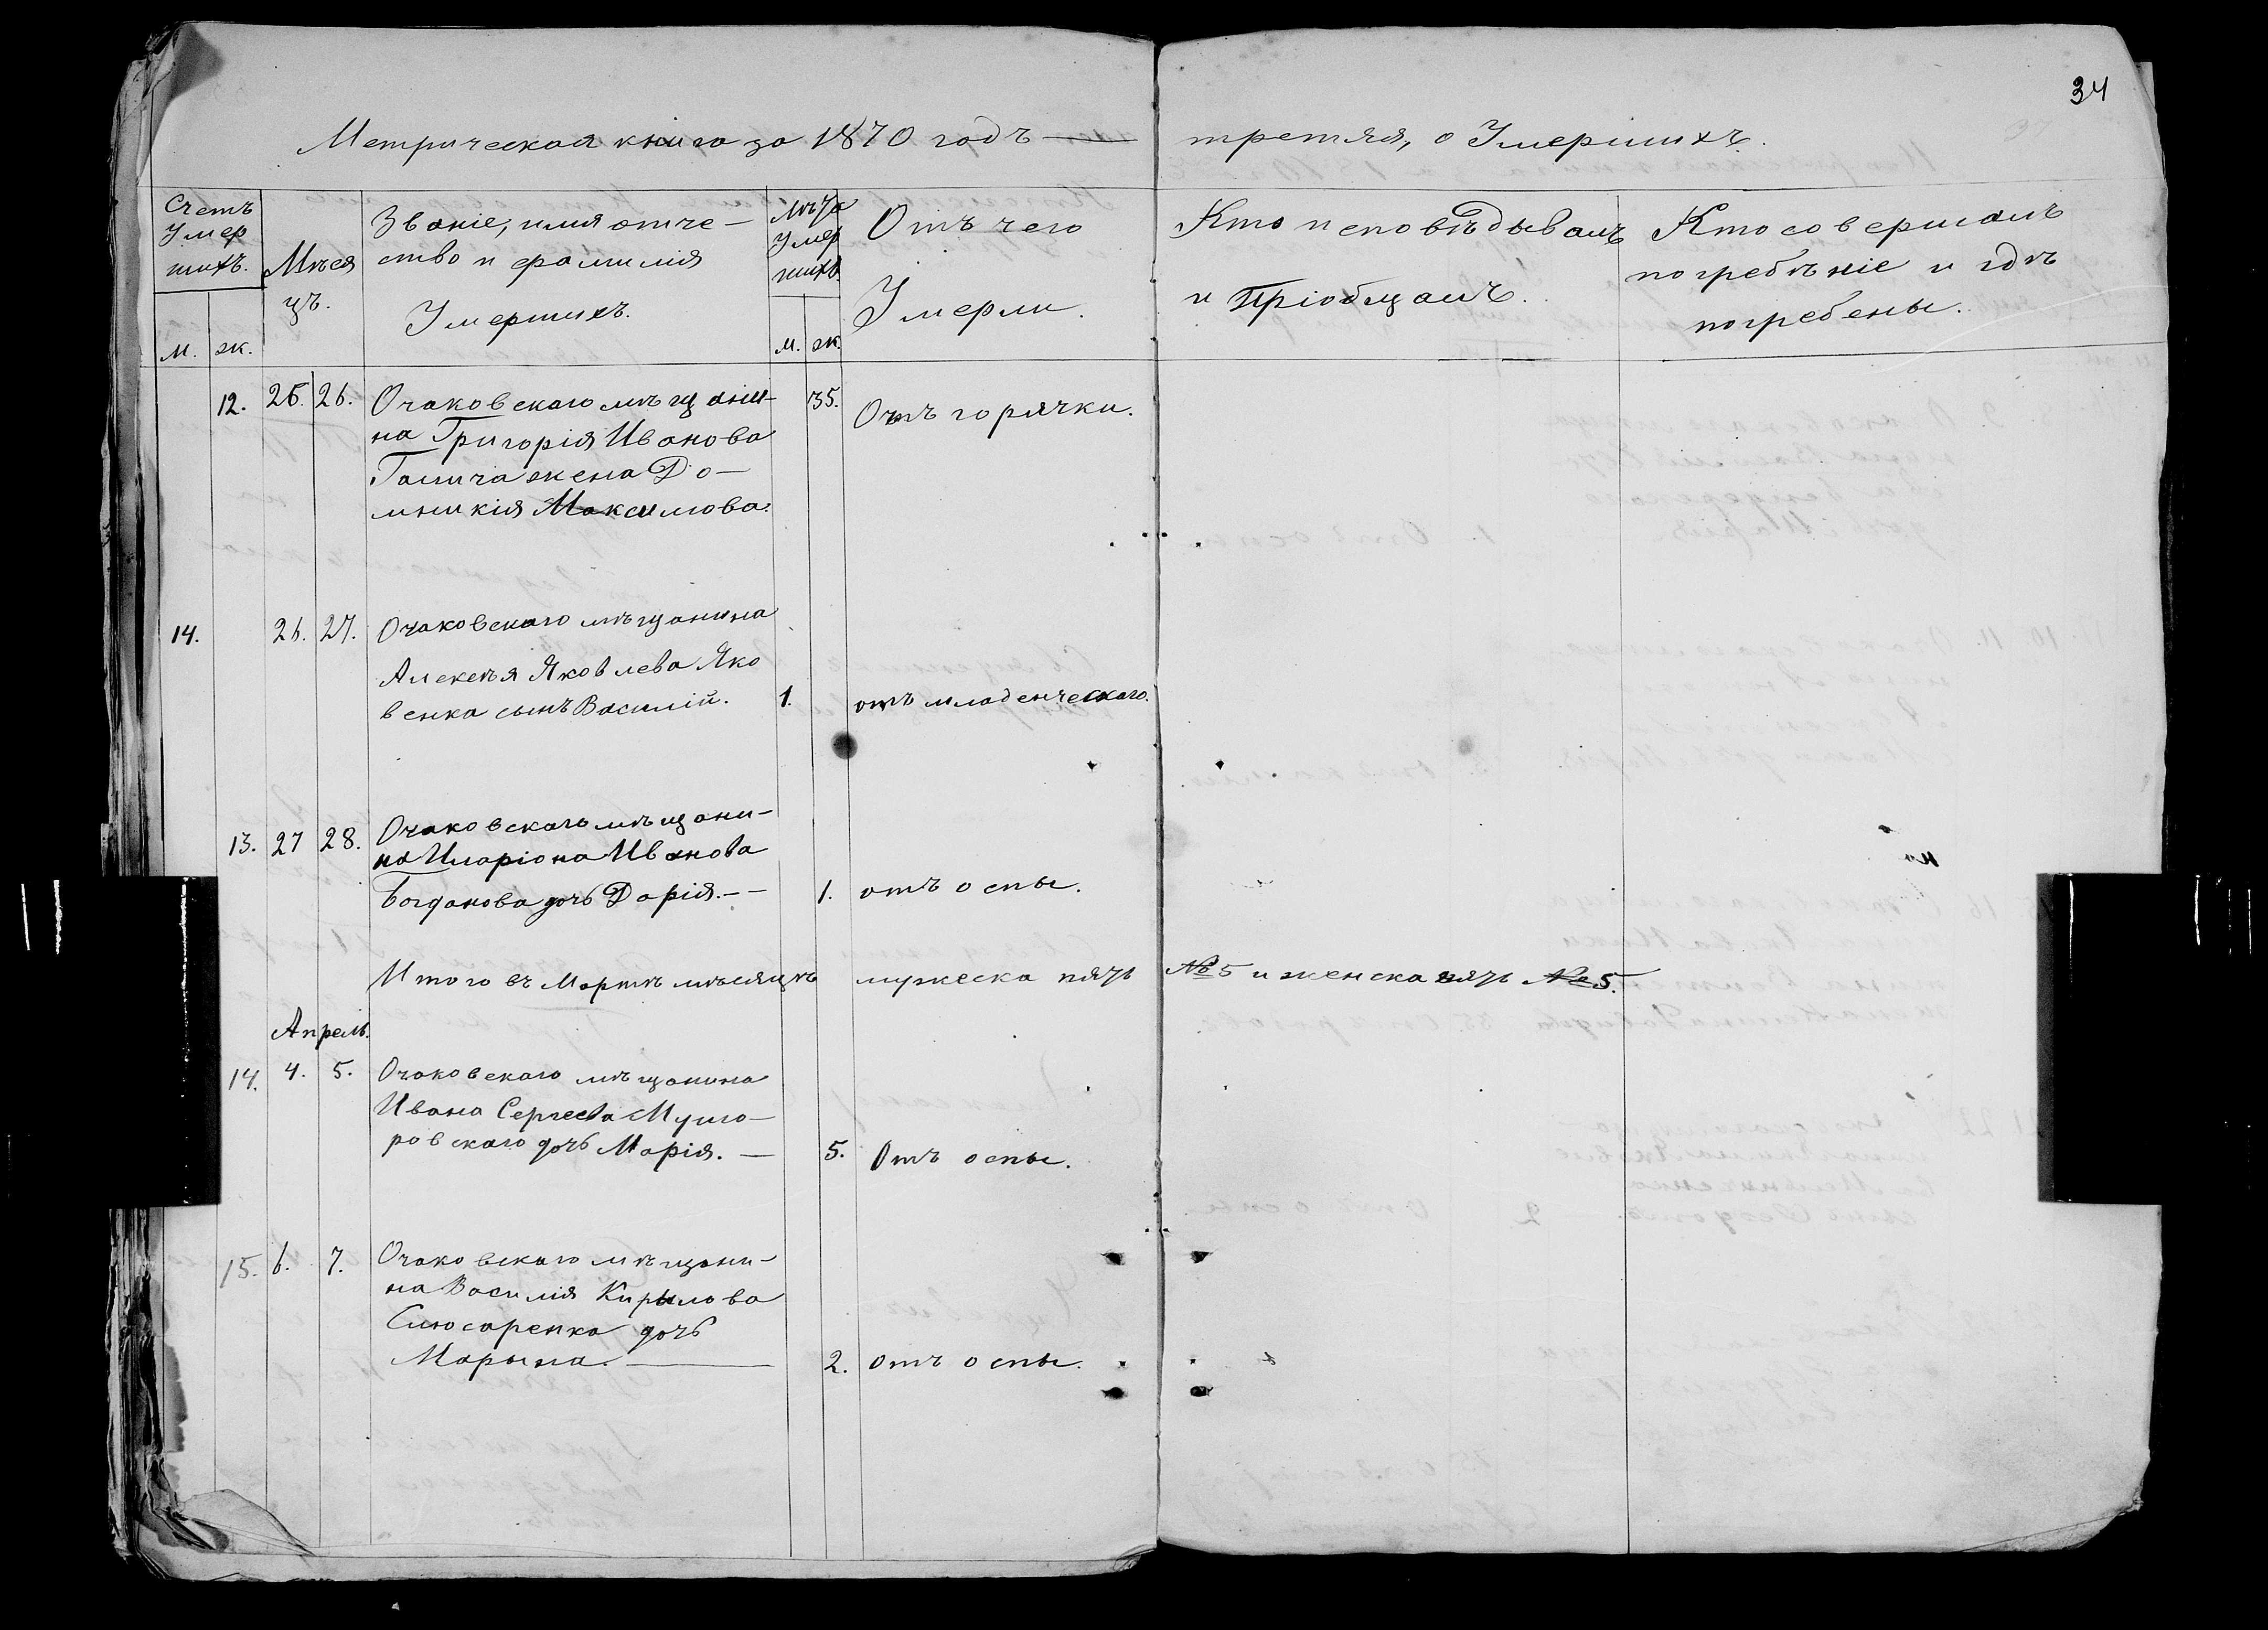 34
Метрическая книга за 1870 годъ — третяя, о Умершихъ.
Счетъ
Умер
шихъ.
м. ж.
Мѣся
цъ.
Званіе, имя отче-
ство и фамилія
Умершихъ.
Лѣта
Умер
шихъ
м. ж.
Отъ чего
Умерли.
Кто исповѣдывалъ
и пріобщалъ.
Кто совершалъ
погребѣніе и гдѣ
погребены.
12. 25. 26. Очаковскаго мѣщани- 35. Отъ горячки.
на Григорія Иванова
Галича жена До-
мникія Максимова.
14. 26. 27. Очаковскаго мѣщанина
Алексѣя Яковлева Яко
венка сынъ Василій. 1. отъ младенческаго.
13. 27 28. Очаковскаго мѣщани-
на Иларіона Иванова
Богданова дочь Дарія. — 1. отъ оспы.
Итого въ Мартѣ мѣсяцѣ мужеска пять № 5 и женска пять № 5.
Апрель.
14. 4. 5. Очаковскаго мѣщанина
Ивана Сергеева
ровскаго дочь Марія. — 5. Отъ оспы.
15. 6. 7. Очаковскаго мѣщани-
на Василія Кирылова
Слюсаренка дочь
Марына. — 2. отъ оспы.